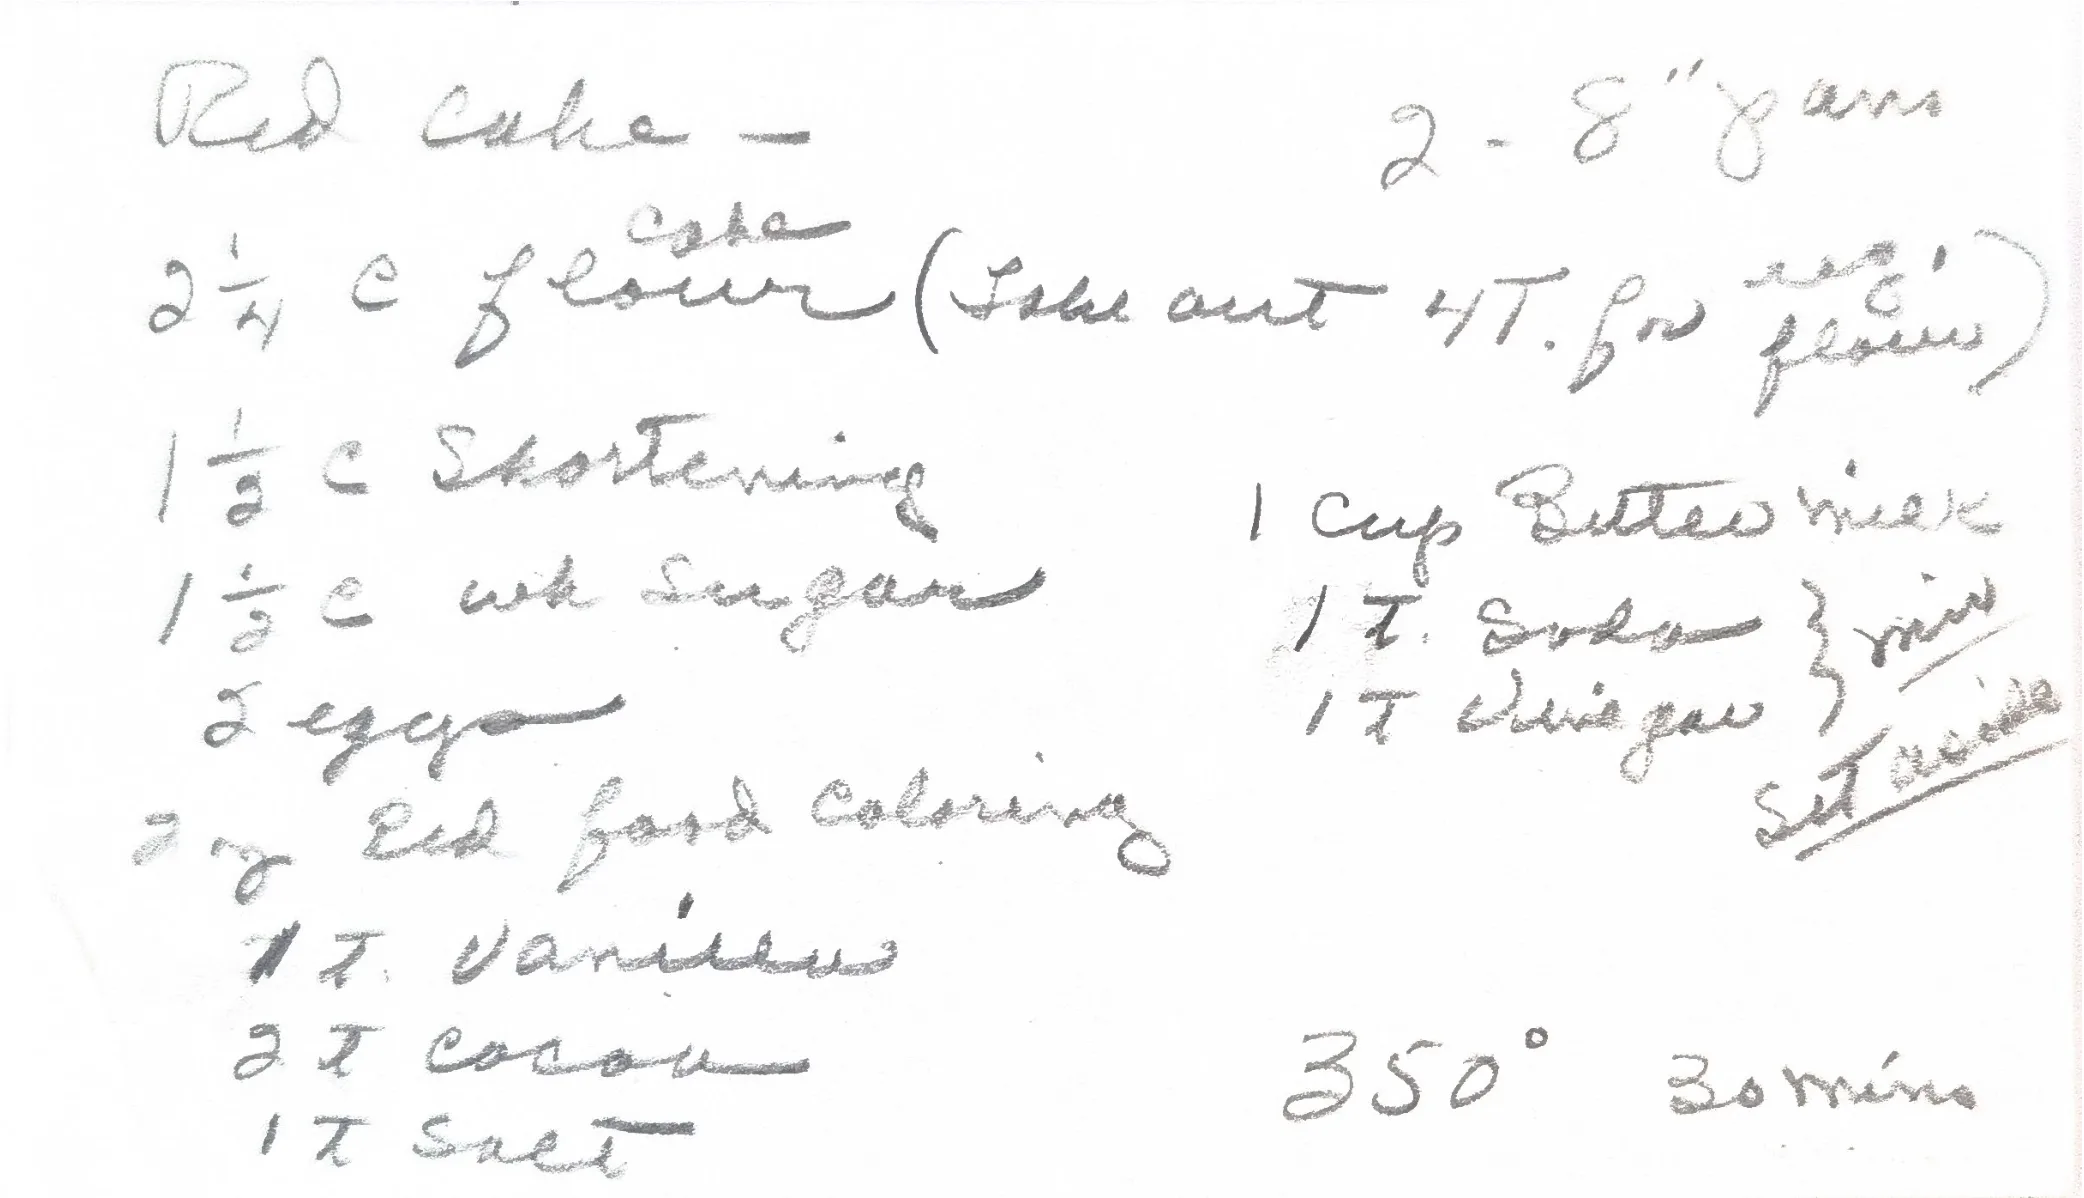 Red Cake — 2 - 8" pans
2 1/4 c flour cake (Take out 4T. for reg. flour)
1 1/2 c Shortening
1 1/2 c wh Sugar
2 eggs
2 oz Red food Coloring
1 T. Vanilla
2 T Cocoa
1 T Salt
1 cup Buttermilk
1 T. Soda } mix
1 T Vinegar }
Set aside
350° 30 mins